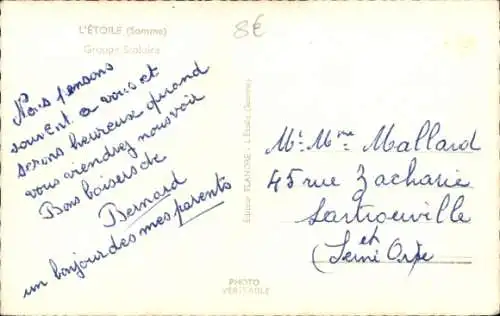 L'ÉTOILE (Somme)
Groupe Scolaire
8€
Nous pensons
souvent a vous et
serons heureux quand
vous viendrez nous voir
Bons baisers de
Bernard
un bonjour des mes parents
Editeur FLANDRE - L'Étoile (Somme)
PHOTO
VÉRITABLE
Mr. Mme Mallard
45 rue Zacharie
Sartrouville
(Seine et Oise